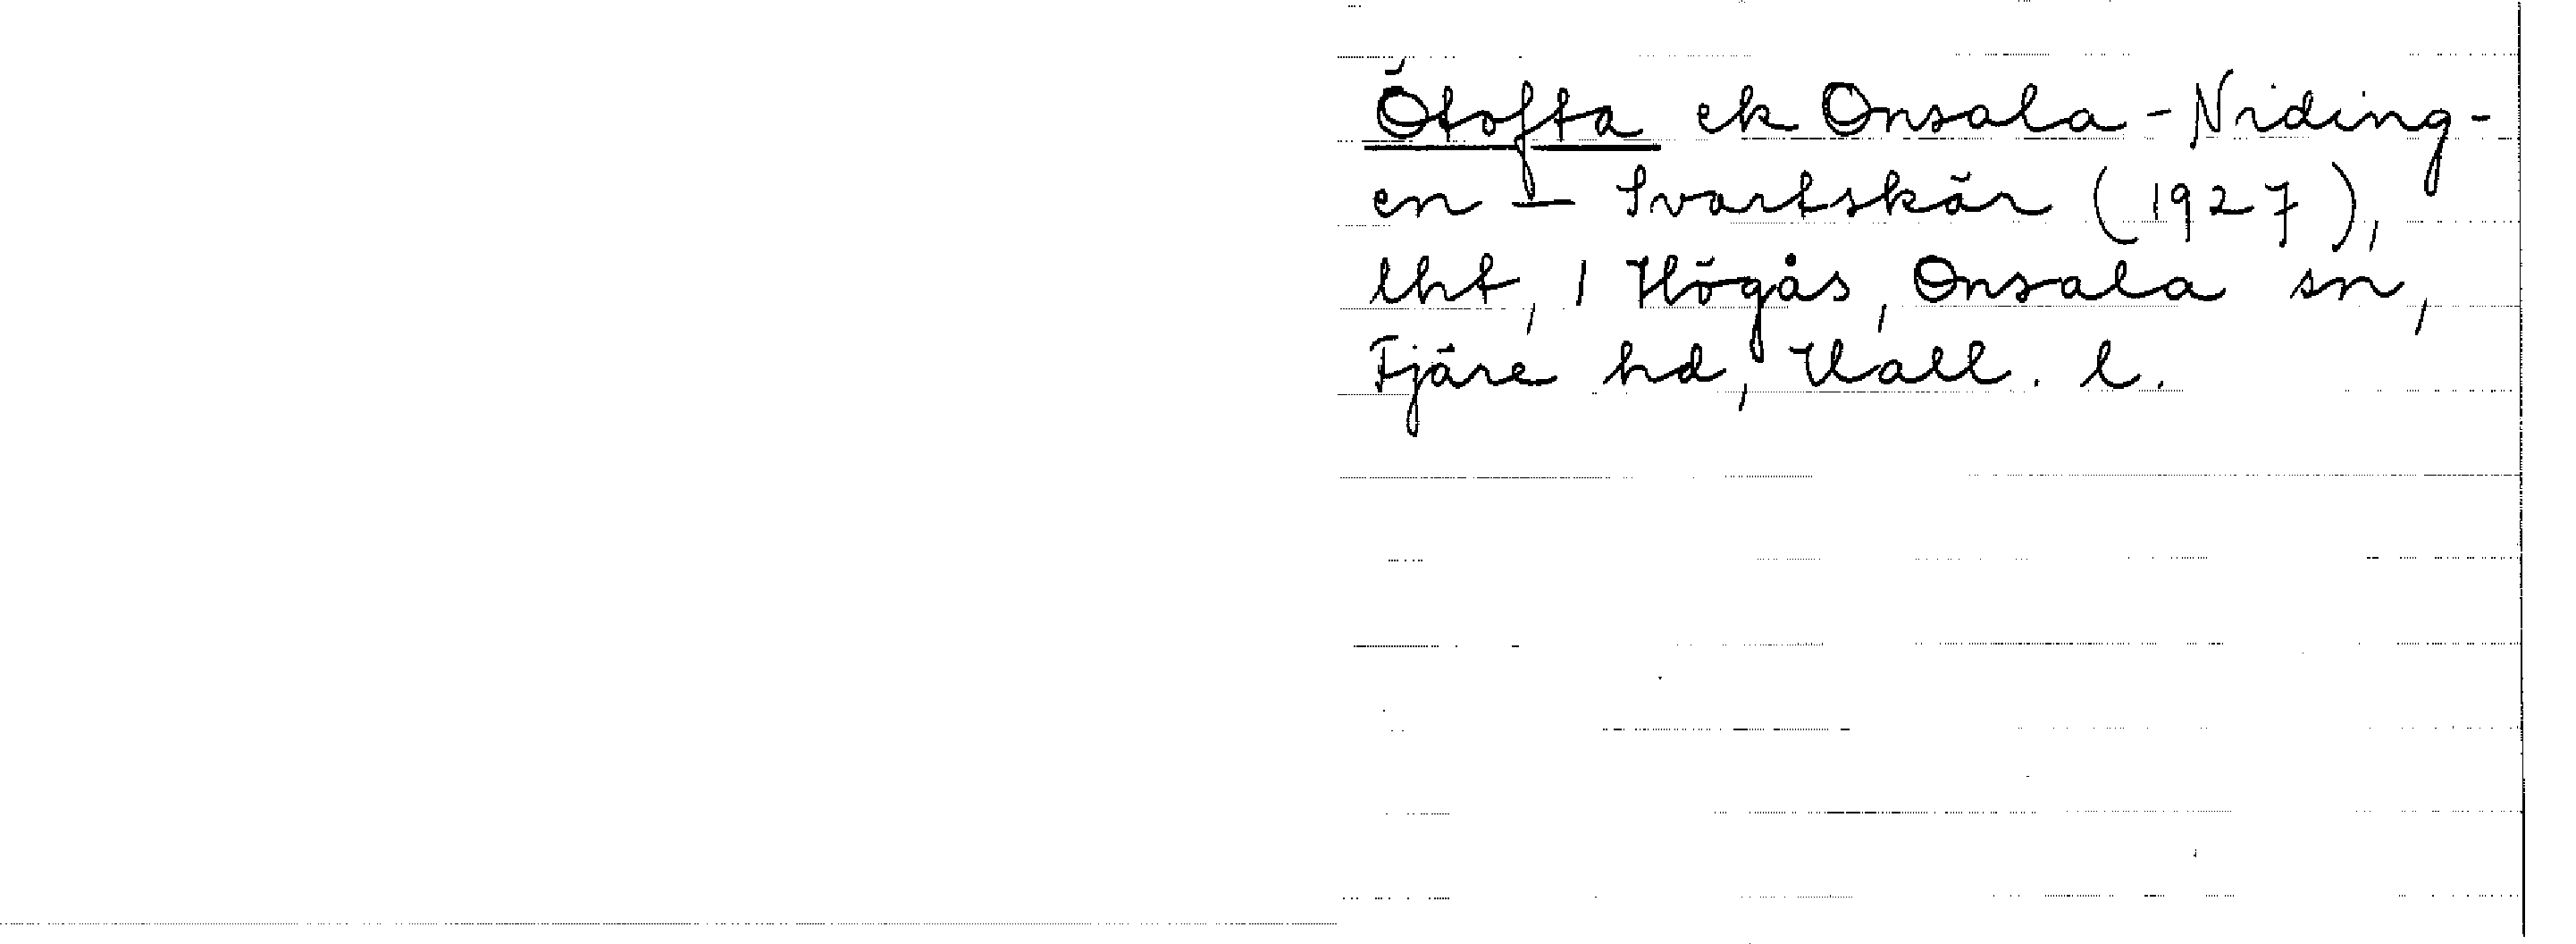 Ötofta ek Onsala - Niding-
en - Svartskär (1927),
lht, 1 Högås, Onsala sn,
Fjäre hd, Hall. l.